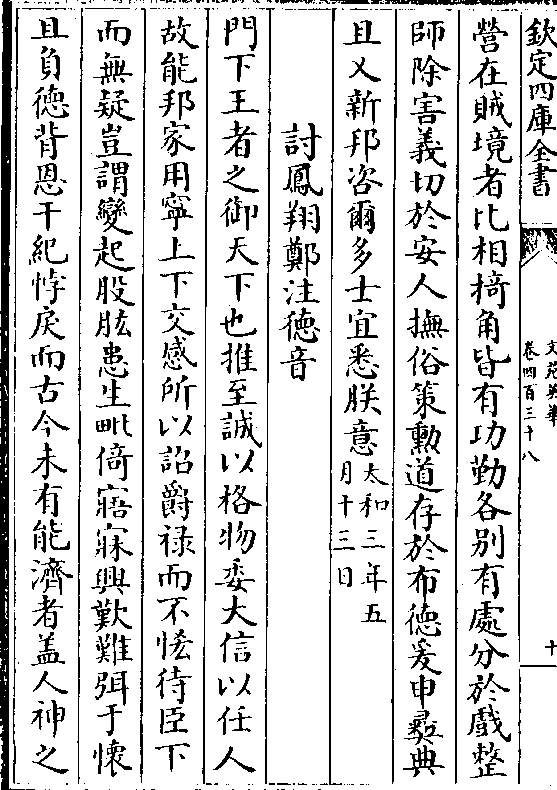 欽定四庫全書
文苑英華
卷四百三十八
十
營在賊境者比相掎角皆有功勤各別有處分於戲整
師除害義切於安人撫俗策勲道存於布德爰申彛典
且乂新邦咨爾多士宜悉朕意太和三年五
月十三日
討鳳翔鄭注德音
門下王者之御天下也推至誠以格物委大信以任人
故能邦家用寧上下交感所以詔爵禄而不恡待臣下
而無疑豈謂變起股肱患生毗倚寤寐興歎難弭于懷
且負德背恩干紀悖戾而古今未有能濟者盖人神之